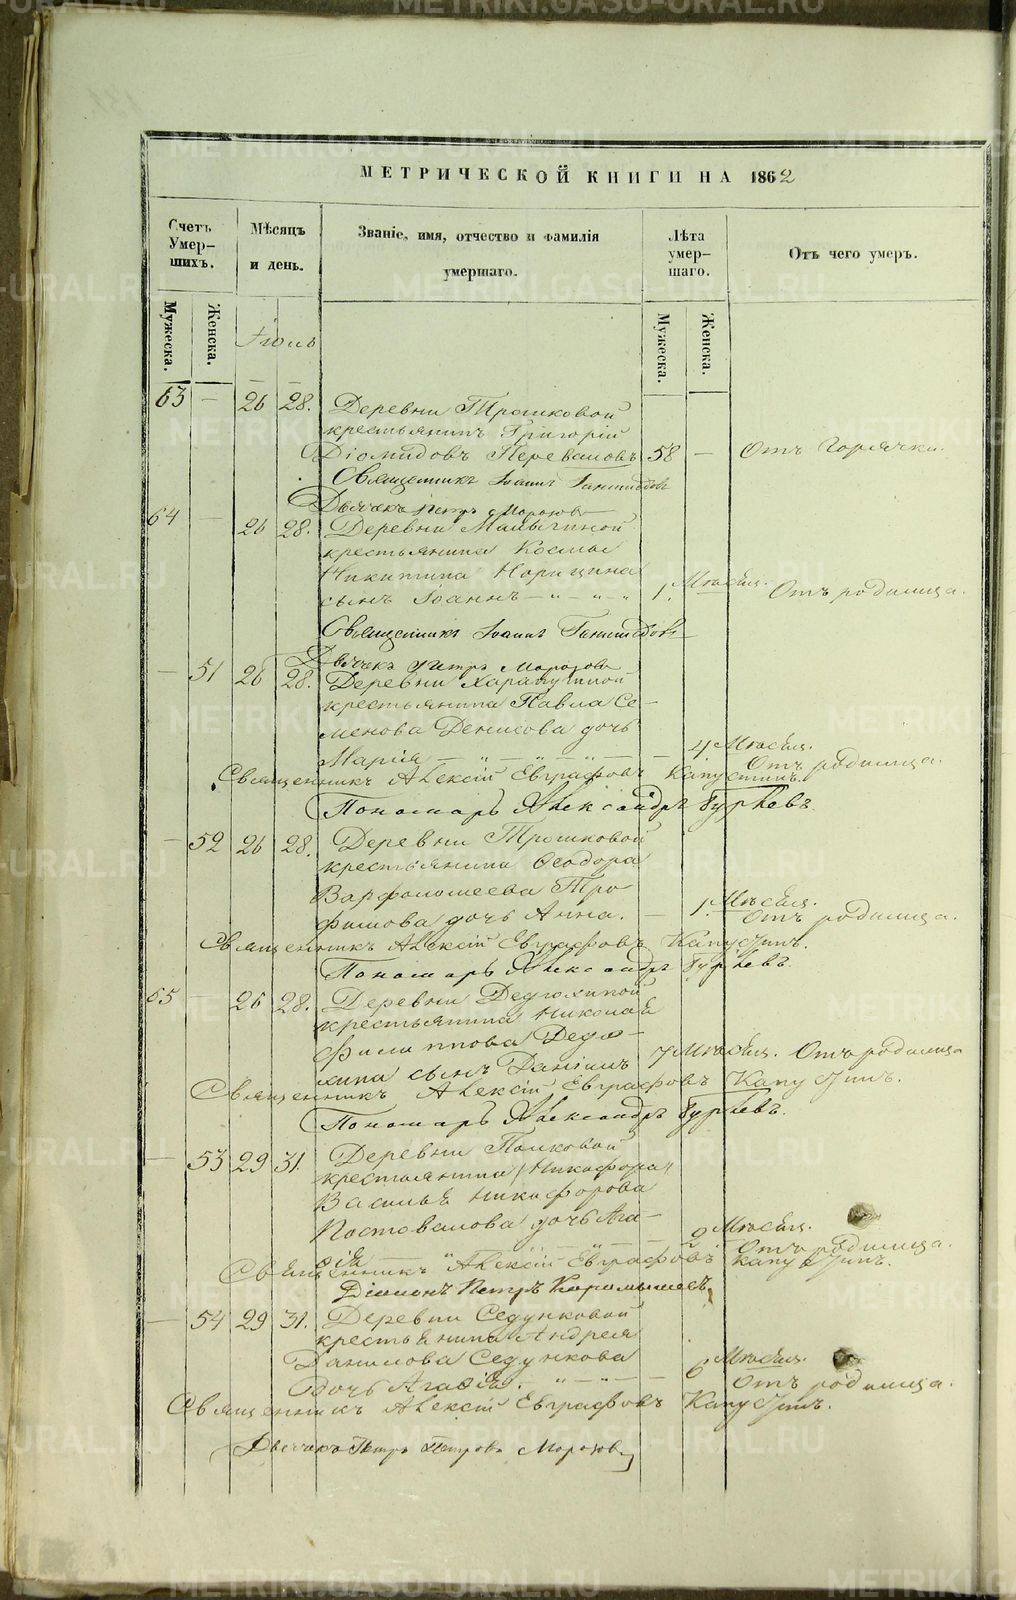 МЕТРИЧЕСКОЙ КНИГИ НА 1862
Счетъ Умер-шихъ.
Мѣсяцъ и день.
Званіе, имя, отчество и фамилія умершаго.
Лѣта умер-шаго.
Отъ чего умеръ.
Мужеска. Женска. Мужеска. Женска.
Іюль
63 — 26 28. Деревни Трошковой
крестьянинъ Григорій
Діомидовъ Переваловъ 58 — Отъ горячки.
Священникъ Іоаннъ
Дьячекъ Петръ Морозовъ
64 — 26 28. Деревни Малыгиной
крестьянина Космы
Никитина Норицина
сынъ Іоаннъ — „ — „ — „ 1. Мѣсяц. Отъ родимца.
Священникъ Іоаннъ
Дьячекъ Петръ Морозовъ
— 51 26 28. Деревни Харапугиной
крестьянина Павла Се-
менова Денисова дочь
Марія — „ — „ — „ — 4 Мѣсяц.
Отъ родимца.
Священникъ Алексій Евграфовъ Капустинъ.
Пономарь Александръ Гурьевъ.
— 52 26 28. Деревни Трошковой
крестьянина Ѳеодора
Варфоломеева Тро-
фимова дочь Анна. — 1. Мѣсяц.
Отъ родимца.
Священникъ Алексій Евграфовъ Капустинъ.
Пономарь Александръ Гурьевъ.
65 — 26 28. Деревни Дедюхиной
крестьянина Николая
Филиппова Дедю-
хина сынъ Даніилъ 7 Мѣсяц. Отъ родимца
Священникъ Алексій Евграфовъ Капустинъ.
Пономарь Александръ Гурьевъ.
— 53 29 31. Деревни Полковой
крестьянина (Никифора)
Василья Никифорова
Постовалова дочь Ага-
ѳія — „ — „ — 2 Мѣсяц.
Отъ родимца.
Священникъ Алексій Евграфовъ Капустинъ.
Діаконъ Петръ
— 54 29 31. Деревни Седунковой
крестьянина Андрея
Данилова Седункова
дочь Агаѳія. — „ — „ — 6 Мѣсяц.
Отъ родимца.
Священникъ Алексій Евграфовъ Капустинъ.
Дьячекъ Петръ Петровъ Морозовъ
METRIKI.GASO-URAL.RU